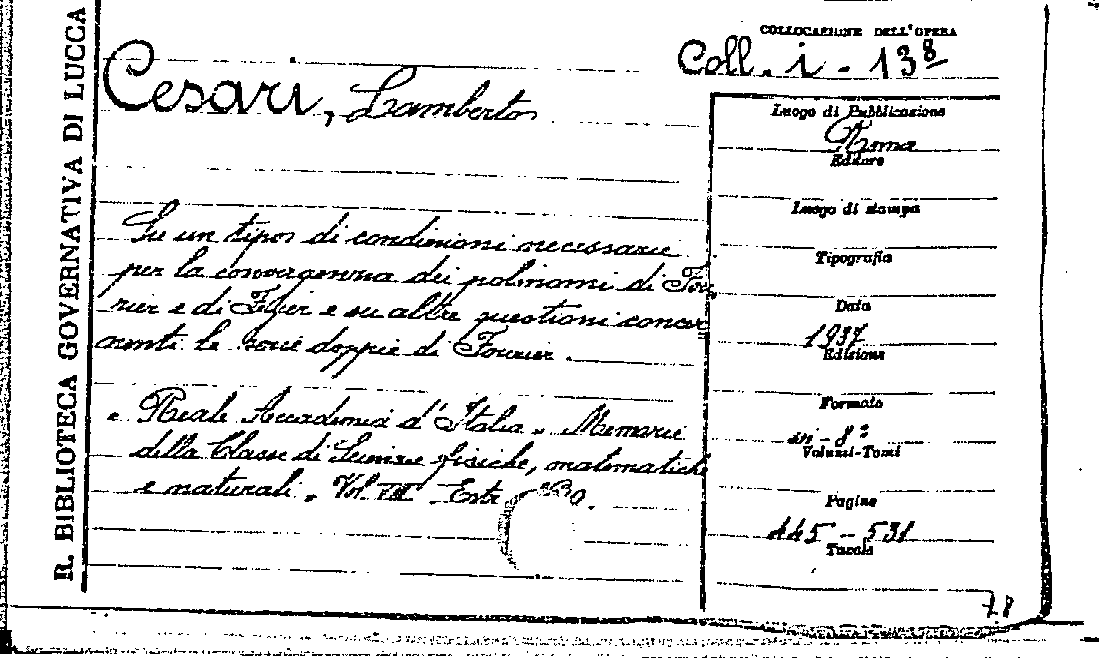 R. BIBLIOTECA GOVERNATIVA DI LUCCA
COLLOCAZIONE DELL'OPERA
Coll. i - 13 8
Cesari, Lamberto
Su un tipo di condizioni necessarie
per la convergenza dei polinomi di Fou
rier e di Fejer e su altre questioni concer
nenti le serie doppie di Fourier.
Reale Accademia d'Italia - Memorie
della Classe di Scienze fisiche, matematiche
e naturali. Vol. VII Estr
Luogo di Pubblicazione
Roma
Editore
Luogo di stampa
Tipografia
Data
1937
Edizione
Formato
in - 8º
Volumi-Tomi
Pagine
445 - 531
Tavole
78